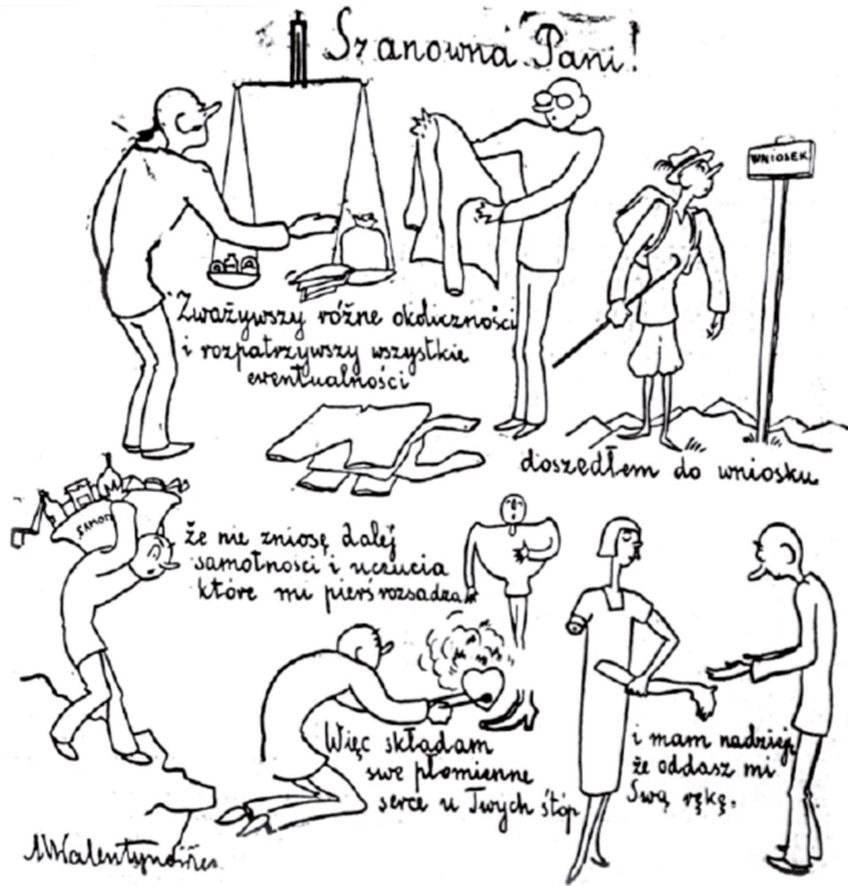 Szanowna Pani!
WNIOSEK
Zważywszy różne okoliczności
i rozpatrzywszy wszystkie
ewentualności
doszedłem do wniosku
SAMOT
że nie zniosę dalej
samotności i uczucia
które mi pierś rozsadza
Więc składam
swe płomienne
serce u Twych stóp
i mam nadzieję
że oddasz mi
Swą rękę.